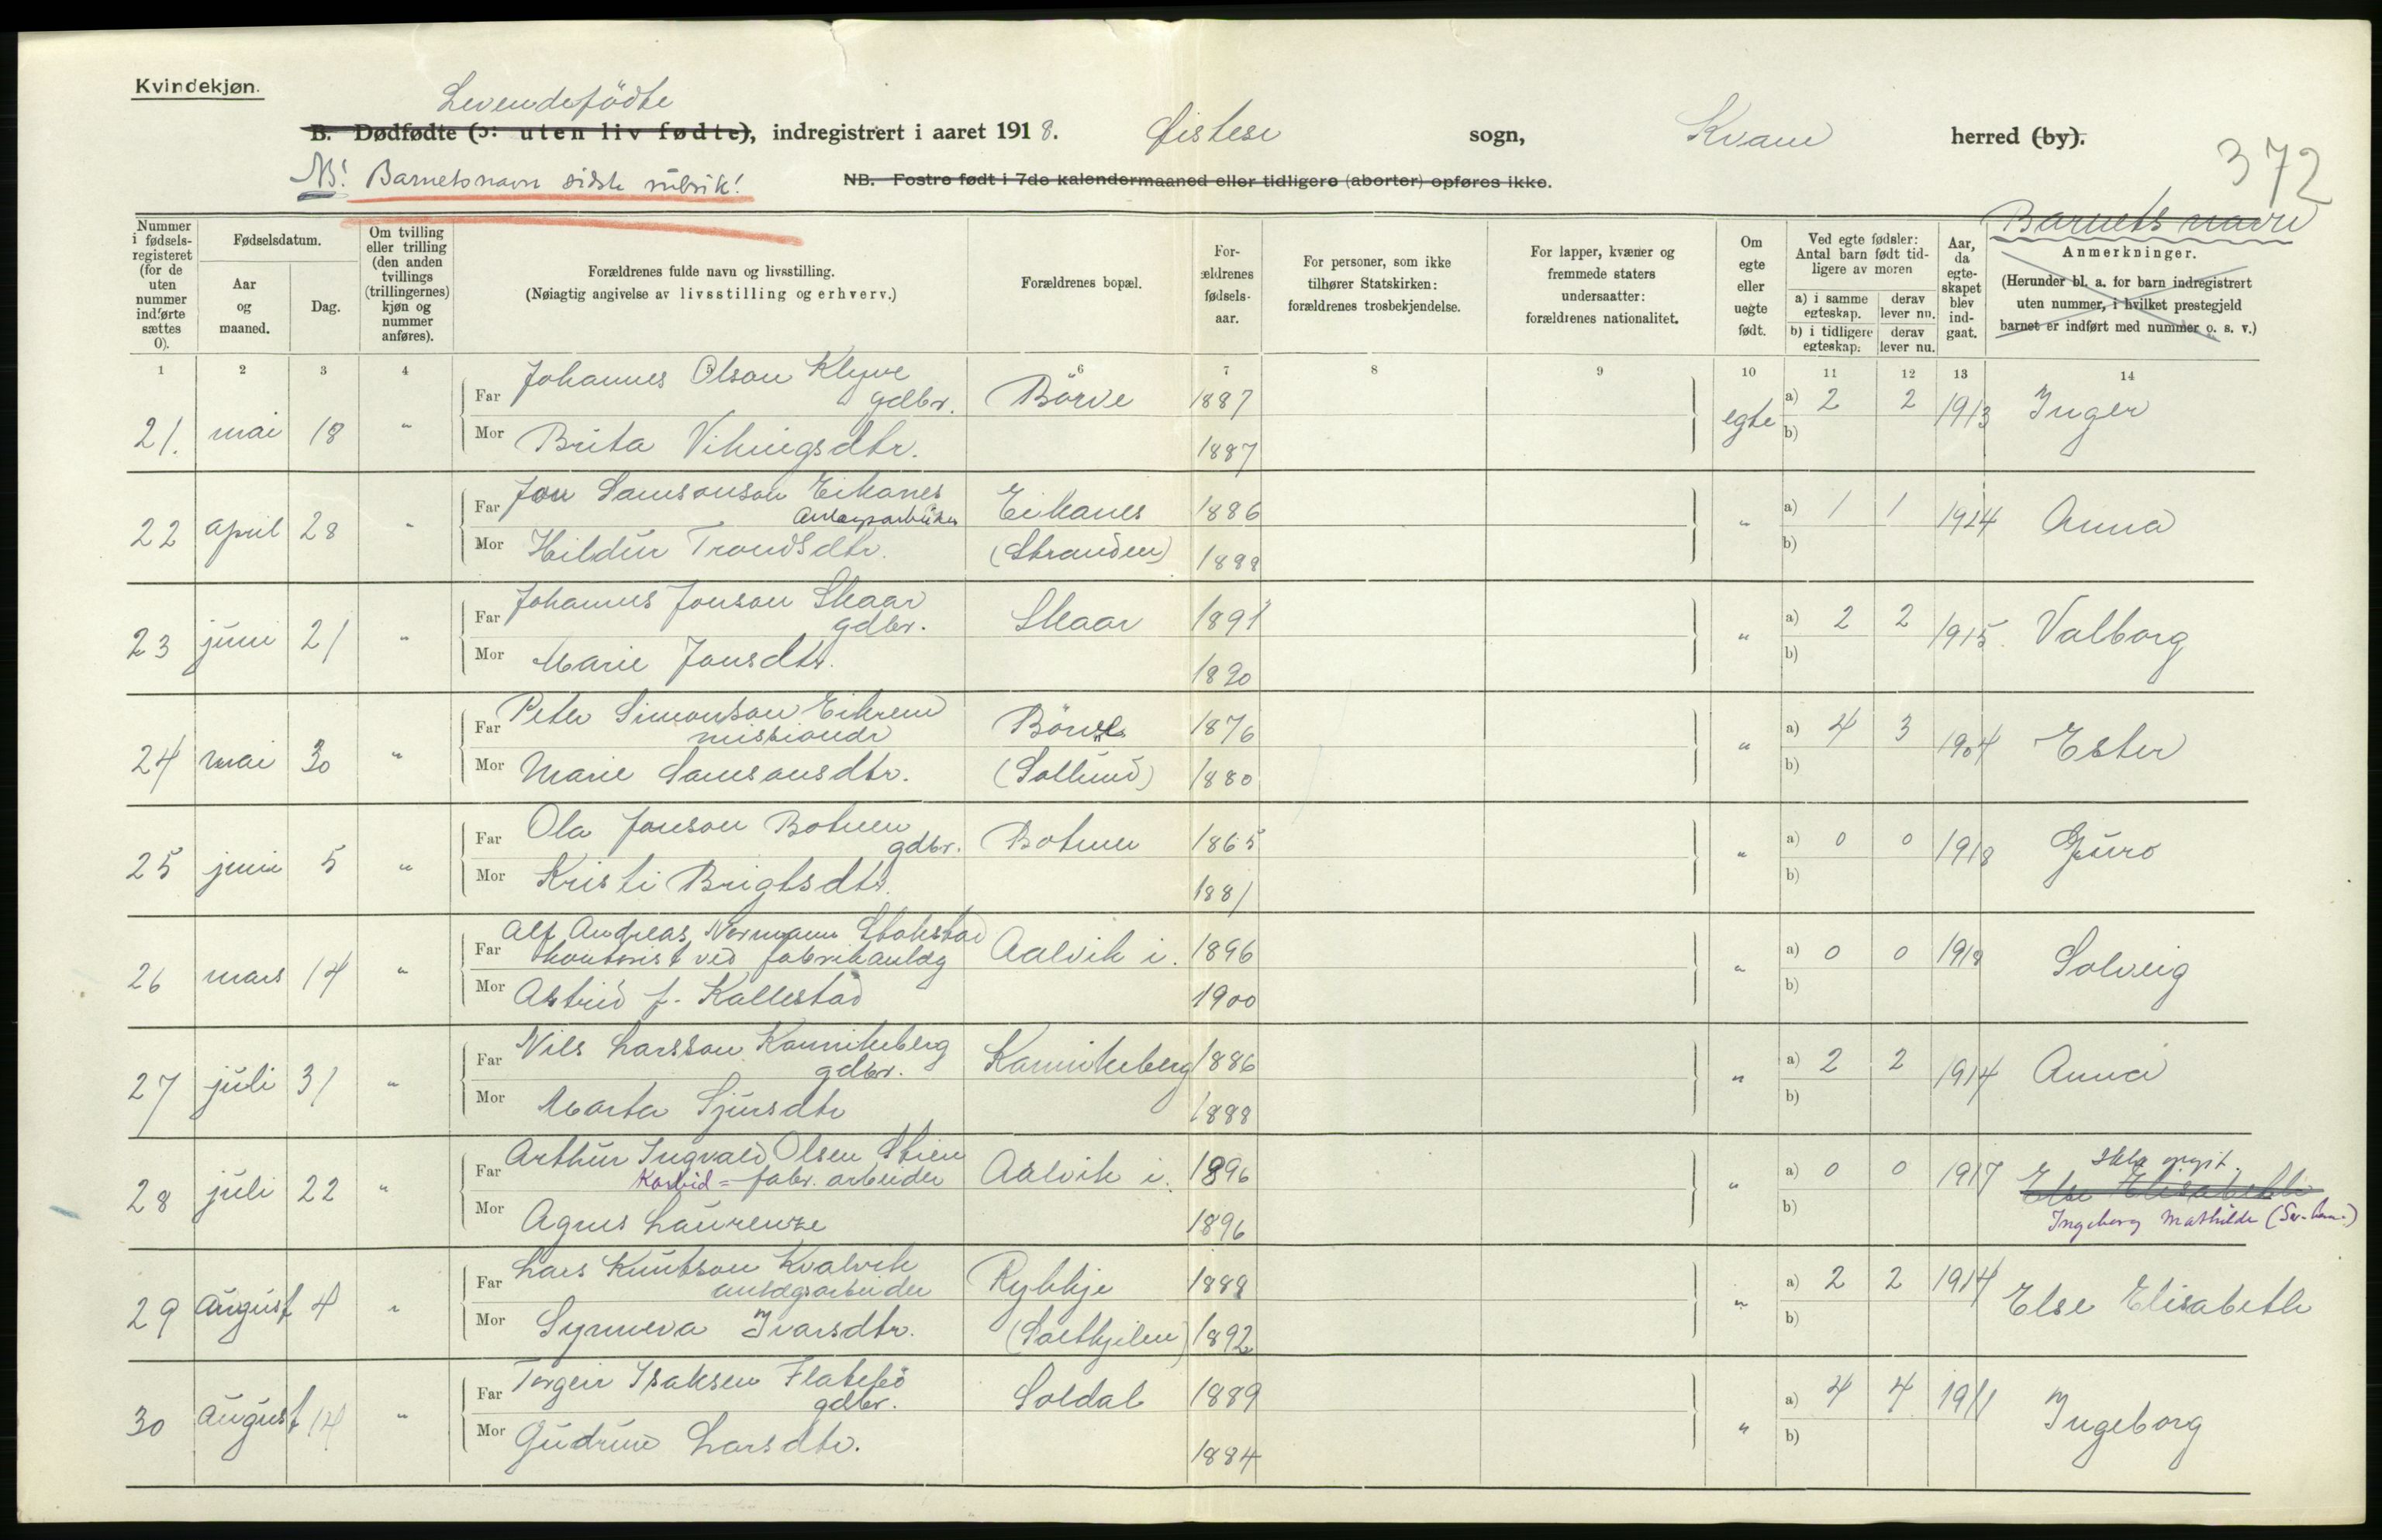 Kvindekjøn.
Levendefödte
B. Dødfødte (ɔ: uten liv fødte), indregistrert i aaret 1918. Øistese sogn, Kvam herred (by).
372
NB! Barnetsnavn sidste rubrik!
NB. Fostre født i 7de kalendermaaned eller tidligere (aborter) opføres ikke.
Barnets navn
Nummer i fødselsregisteret (for de uten nummer indførte sættes 0).
Fødselsdatum.
Aar og maaned.
Dag.
Om tvilling eller trilling (den anden tvillings (trillingernes) kjøn og nummer anføres).
Forældrenes fulde navn og livsstilling.
(Nøiagtig angivelse av livsstilling og erhverv.)
Forældrenes bopæl.
Forældrenes fødselsaar.
For personer, som ikke tilhører Statskirken: forældrenes trosbekjendelse.
For lapper, kvæner og fremmede staters undersaatter: forældrenes nationalitet.
Om egte eller uegte født.
Ved egte fødsler: Antal barn født tidligere av moren
a) i samme egteskap. derav lever nu.
b) i tidligere egteskap. derav lever nu.
Aar, da egteskapet blev indgaat.
Anmerkninger.
(Herunder bl. a. for barn indregistrert uten nummer, i hvilket prestegjeld barnet er indført med nummer o. s. v.)
1 2 3 4 5 6 7 8 9 10 11 12 13 14
21. mai 18 " Far Johannes Olson Klyve gdbr. Börve 1887 egte a) 2 2 1913 Inger
Mor Brita Vikingsdtr. 1887 b)
22 april 28 " Far Jon Samsonson Eikanes Anlægsarbeider Eikanes 1886 " a) 1 1 1914 Anna
Mor Hildur Trondsdtr. (Stranden) 1888 b)
23 juni 21 " Far Johannes Jonson Skaar gdbr. Skaar 1891 " a) 2 2 1915. Valborg
Mor Marie Jonsdtr. 1890 b)
24 mai 30 " Far Peter Simonson Eikrem missionær Börve 1876 " a) 4 3 1904 Ester
Mor Marie Samsonsdtr. (Sollund) 1880 b)
25 juni 5 " Far Ola Jonson Botnen gdbr. Botnen 1865 " a) 0 0 1918 Guro
Mor Kristi Brigtsdtr. 1881 b)
26 mars 14 " Far Alf Andreas Normann Stokstad kontorist ved fabrikanlæg Aalvik i. 1896 " a) 0 0 1918 Solveig
Mor Astrid f. Kallestad 1900 b)
27 juli 31 " Far Nils Larsson Kannikeberg gdbr. Kannikeberg 1886 " a) 2 2 1914 Anna
Mor Marta Sjursdtr 1888 b)
28 juli 22 " Far Arthur Ingvald Olsen Stien Karbid = fabr. arbeider Aalvik i. 1896 " a) 0 0 1917 Ikke opgit.
Else Elisabeth
Mor Agnes Laurense 1896 b) Ingeborg Mathilde
29 August 4 " Far Lars Knutson Kvalvik anlægsarbeider Rykkje 1888 " a) 2 2 1914 Else Elisabeth
Mor Synneva Ivarsdtr. (Saltkjelen) 1892 b)
30 August 14 " Far Torgeir Isaksen Flatebö gdbr. Soldal 1889 " a) 4 4 1911 Ingeborg
Mor Gudrun Larsdtr. 1884 b)